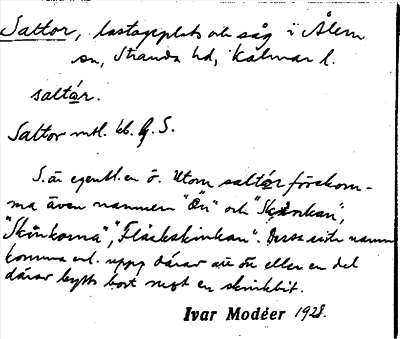 Saltor, lastageplats och såg i Ålem
sn, Stranda hd, Kalmar l.
saltår.
Saltor mtl. kb. G. S.
S. är egentl. en ö. Utom saltår förekom-
ma även namnen "Ön" och "Skinkan",
"Skinkorna", "Fläskskinkan". Dessa namn
komma enl. uppg. därav att ön eller en del
därav bytts bort mot en skinkbit.
Ivar Modéer 1928.